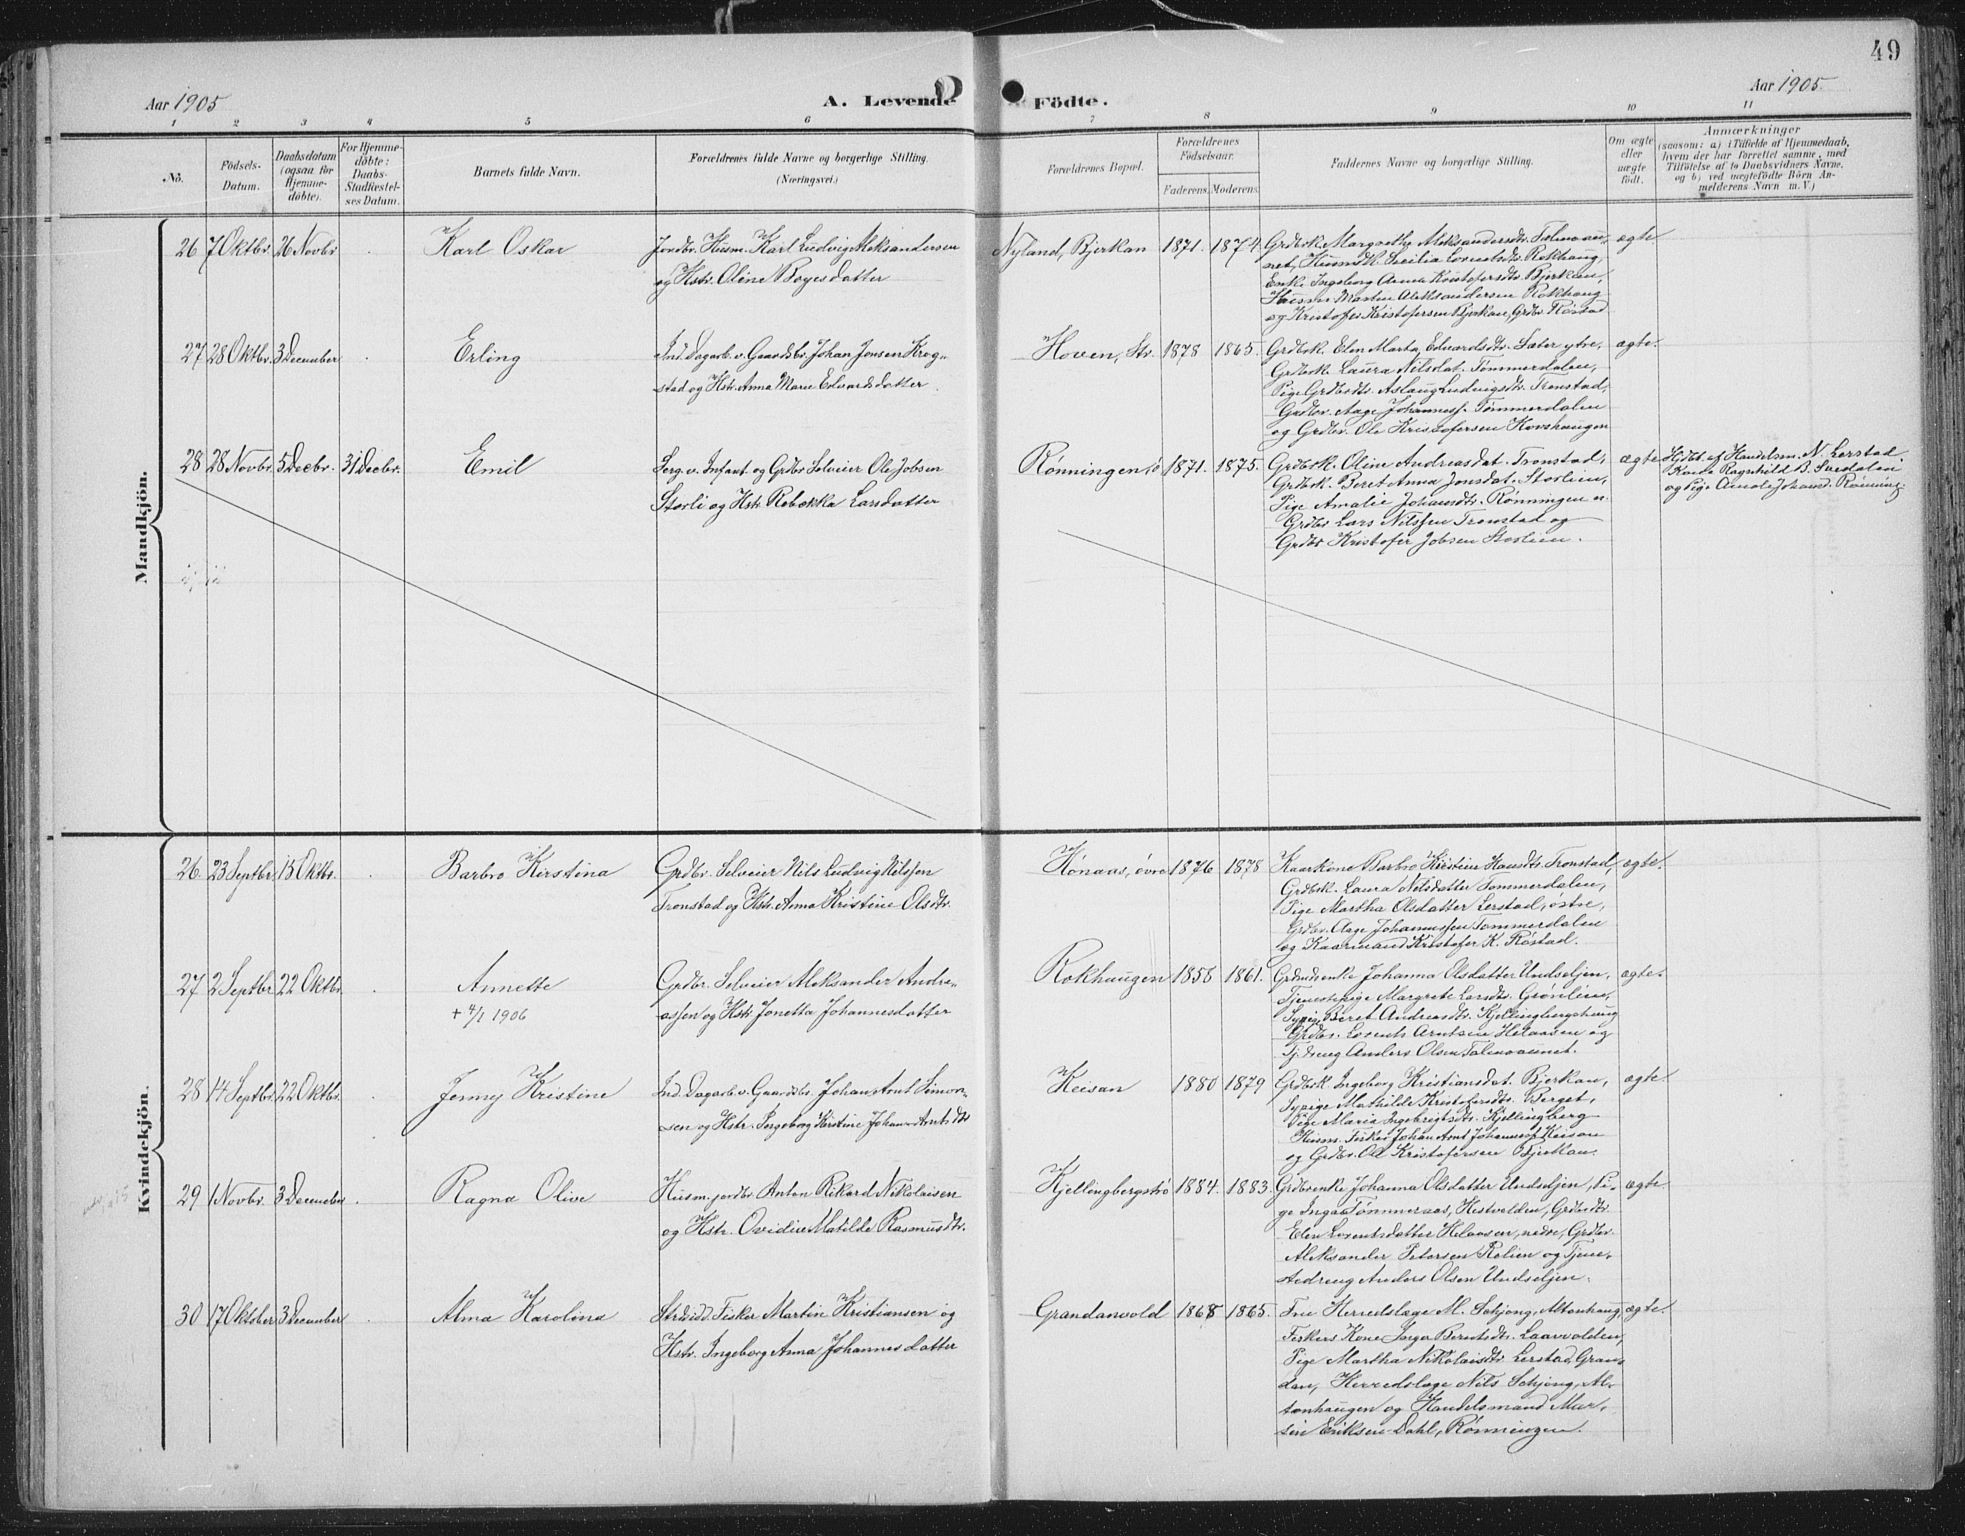 49
Aar 1905
A. Levende Födte.
Aar 1905
1 2 3 4 5 6 7 8 9 10 11
No.
Födsels-
Datum.
Daabsdatum
(ogsaa for
Hjemme-
döbte).
For Hjemme-
döbte:
Daabs-
Stadfæstel-
ses Datum.
Barnets fulde Navn.
Forældrenes fulde Navne og borgerlige Stilling.
(Næringsvei.)
Forældrenes Bopæl.
Forældrenes
Födselsaar.
Faderens. Moderens.
Faddernes Navne og borgerlige Stilling.
Om ægte
eller
uægte
födt.
Anmærkninger
(saasom: a) i Tilfælde af Hjemmedaab,
hvem der har forrettet samme, med
Tilföielse af to Daabsvidners Navne,
og b) ved uægtefödte Börn An-
melderens Navn m. V.)
Mandkjön.
26 7 Oktbr. 26 Novbr. Karl Oskar
Jordbr. Husm. Karl Ludvig Aleksandersen
og Hstr. Oline Boyesdatter
Nyland, Bjerkan 1871. 1874.
Grdbrk. Margrethe Aleksandersdtr. Talmoau-
net, Husmdk. Secilia Lorentsdtr. Rokhaug,
Enke Ingeborg Anna Kristofersdtr. Bjerkan,
Husm. Martin Aleksandersen Rokhaug
og Kristofer Kristofersen Bjerkan, Grdbr. Røstad
ægte
27 28 Oktbr. 3 December Erling
Ind. Dagarb. v. Gaardsbr. Johan Jonsen Krog-
stad og Hstr. Anna Marie Edvardsdatter.
Hoven, Str. 1878 1865.
Grdbrk. Elen Marta Edvardsdtr. Sæter ytre,
Grdbrk. Laura Nilsdat. Tømmerdalen,
Pige Grdbrdtr. Aslaug Ludvigsdtr. Tronstad,
Grdbr. Aage Johanness. Tømmerdalen
og Grdbr. Ole Kristofersen Hovshaugen
ægte.
28 28 Novbr. 5 Decbr. 31 Decbr. Emil
Serg. v. Infant. og Grdbr. Selveier Ole Jobsen
Storli og Hstr. Rebekka Larsdatter
Rønningen, ø 1871. 1875.
Grdbrk. Oline Andreasdat. Tronstad,
Grdbrk. Beret Anna Jonsdat. Storlien,
Pige Amalie Johansdtr. Rønningen n.
Grdbr. Lars Nilssen Tronstad og
Grdbr. Kristofer Jobsen Storlien.
ægte
Hjdbt. af Handelsm. N. Lerstad
Kone Ragnhild B. Sredalen
og Pige Amalie Johansd. Rønning.
Kvindekjön.
26 23 Septbr. 15 Oktbr. Barbro Kirstina
Grdbr. Selveier Nils Ludvig Nilssen
Tronstad og Hstr. Anna Kristine Olsdtr.
Hønaas, övre 1876 1878
Kaarkone Barbro Kristine Hansdtr. Tronstad,
Grdbrk. Laura Nilsdatter Tømmerdalen,
Pige Martha Olsdatter Lerstad, østre,
Grdbr. Aage Johannessen Tømmerdalen
og Kaarmand Kristofer K. Røstad.
ægte.
27 2 Septbr. 22 Oktbr. Annette
+ 4/1 1906
Grdbr. Selveier Aleksander Andre-
assen og Hstr. Jonetta Johannesdatter
Rokhaugen 1858 1861.
Grdmdsenke Johanna Olsdatter Undseljen,
Tjenestepige Margrete Larsdtr. Grønlien,
Sypig. Beret Andreasdtr. Kjellingbergshaug
Grdbr. Lorents Arntsen Helaasen og
Tj.dreng Anders Olsen Talmoaunet.
ægte.
28 14 Septbr. 22 Oktbr. Jenny Kristine
Ind. Dagarb. v. Gaardsbr. Johan Arnt Simon-
sen og Hstr. Ingeborg Kirstine Johan-Arntsdtr
Keisan 1880 1879
Grdbrk. Ingeborg Kristiansdat. Bjerkan,
Sypige Mathilde Kristofersdtr. Berget,
Pige Maria Ingebrigtsdtr. Kjellingberg
Husm. Fisker Johan Arnt Johannes. Keisan
og Grdbr. Ole Kristofersen Bjerkan.
ægte
29 1 Novbr. 3 December Ragna Olive
Husm. jordbr. Anton Rikard Nikolaisen
og Hstr. Ovidie Matilde Rasmusdtr.
Kjellingbergstrø 1884. 1883.
Grdbrenke Johanna Olsdatter Undseljen, Pi-
ge Inga Tømmeraas, Hestvolden, Grdmdtr.
Elen Lorentsdatter Helaasen, nedre, Grdbr.
Aleksander Petersen Rolien og Tjene-
stedreng Anders Olsen Undseljen.
ægte
30 17 Oktober 3 December Alma Karolina
Strdsidd. Fisker Martin Kristiansen og
Hstr. Ingeborg Anna Johannesdatter
Grandanvold 1868 1865.
Fru Herredslæge M. Schjong, Altenhaug,
Fiskers Kone Inga Berntsdtr. Laavolden,
Pige Martha Nikolaisdtr. Lerstad, Gran-
dan, Herredslæge Nils Schjong, Al-
tenhaugen og Handelsmand Mar-
tin Eriksen Dahl, Rønningen.
ægte